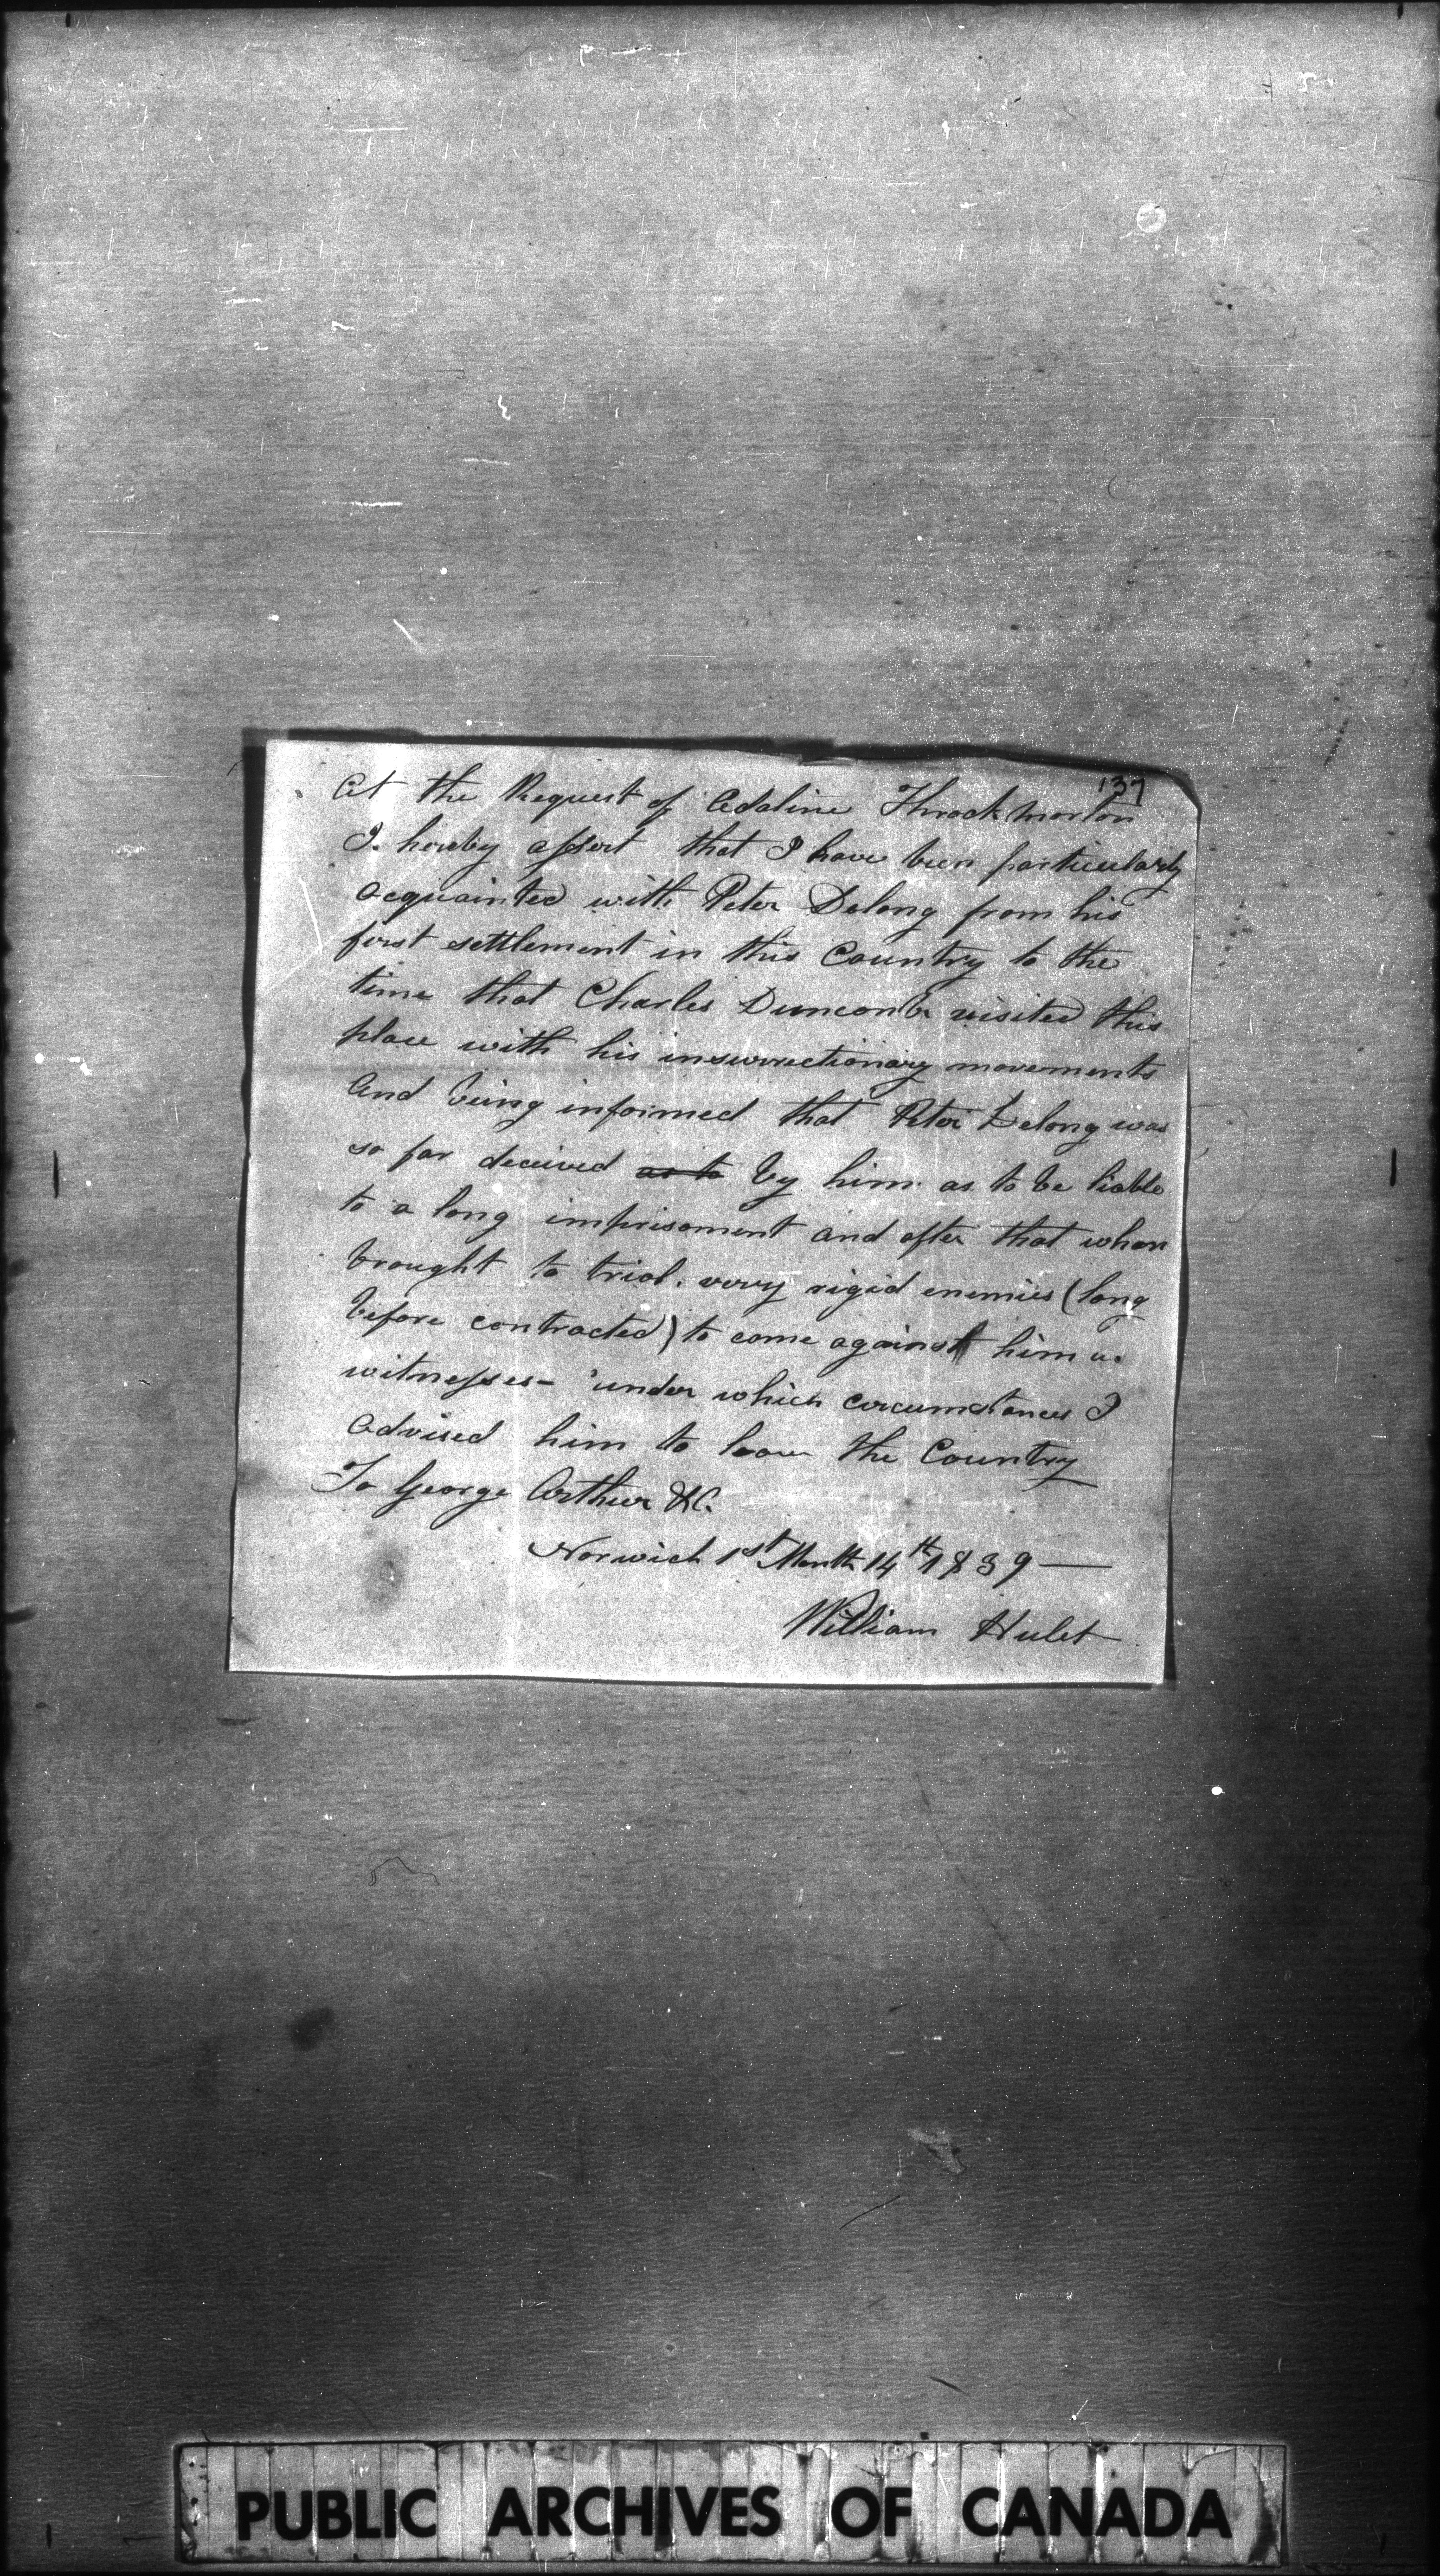 137
At the Request of Adaline Throckmorton
I. hereby assert that I have been particularly
acquainted with Peter Delong from his
first settlement in this Country to the
time that Charles Duncomb visited this
place with his insurrectionary movements
And being informed that Peter Delong was
so far deceived as to by him as to be liable
to a long imprisonment and after that when
brought to trial. very rigid enemies (long
before contracted) to come against him as
witnesses- under which circumstances I
advised him to leave the Country
To George Arthur &C.
Norwich 1st Month 14th 1839—
William Hulet
PUBLIC ARCHIVES OF CANADA